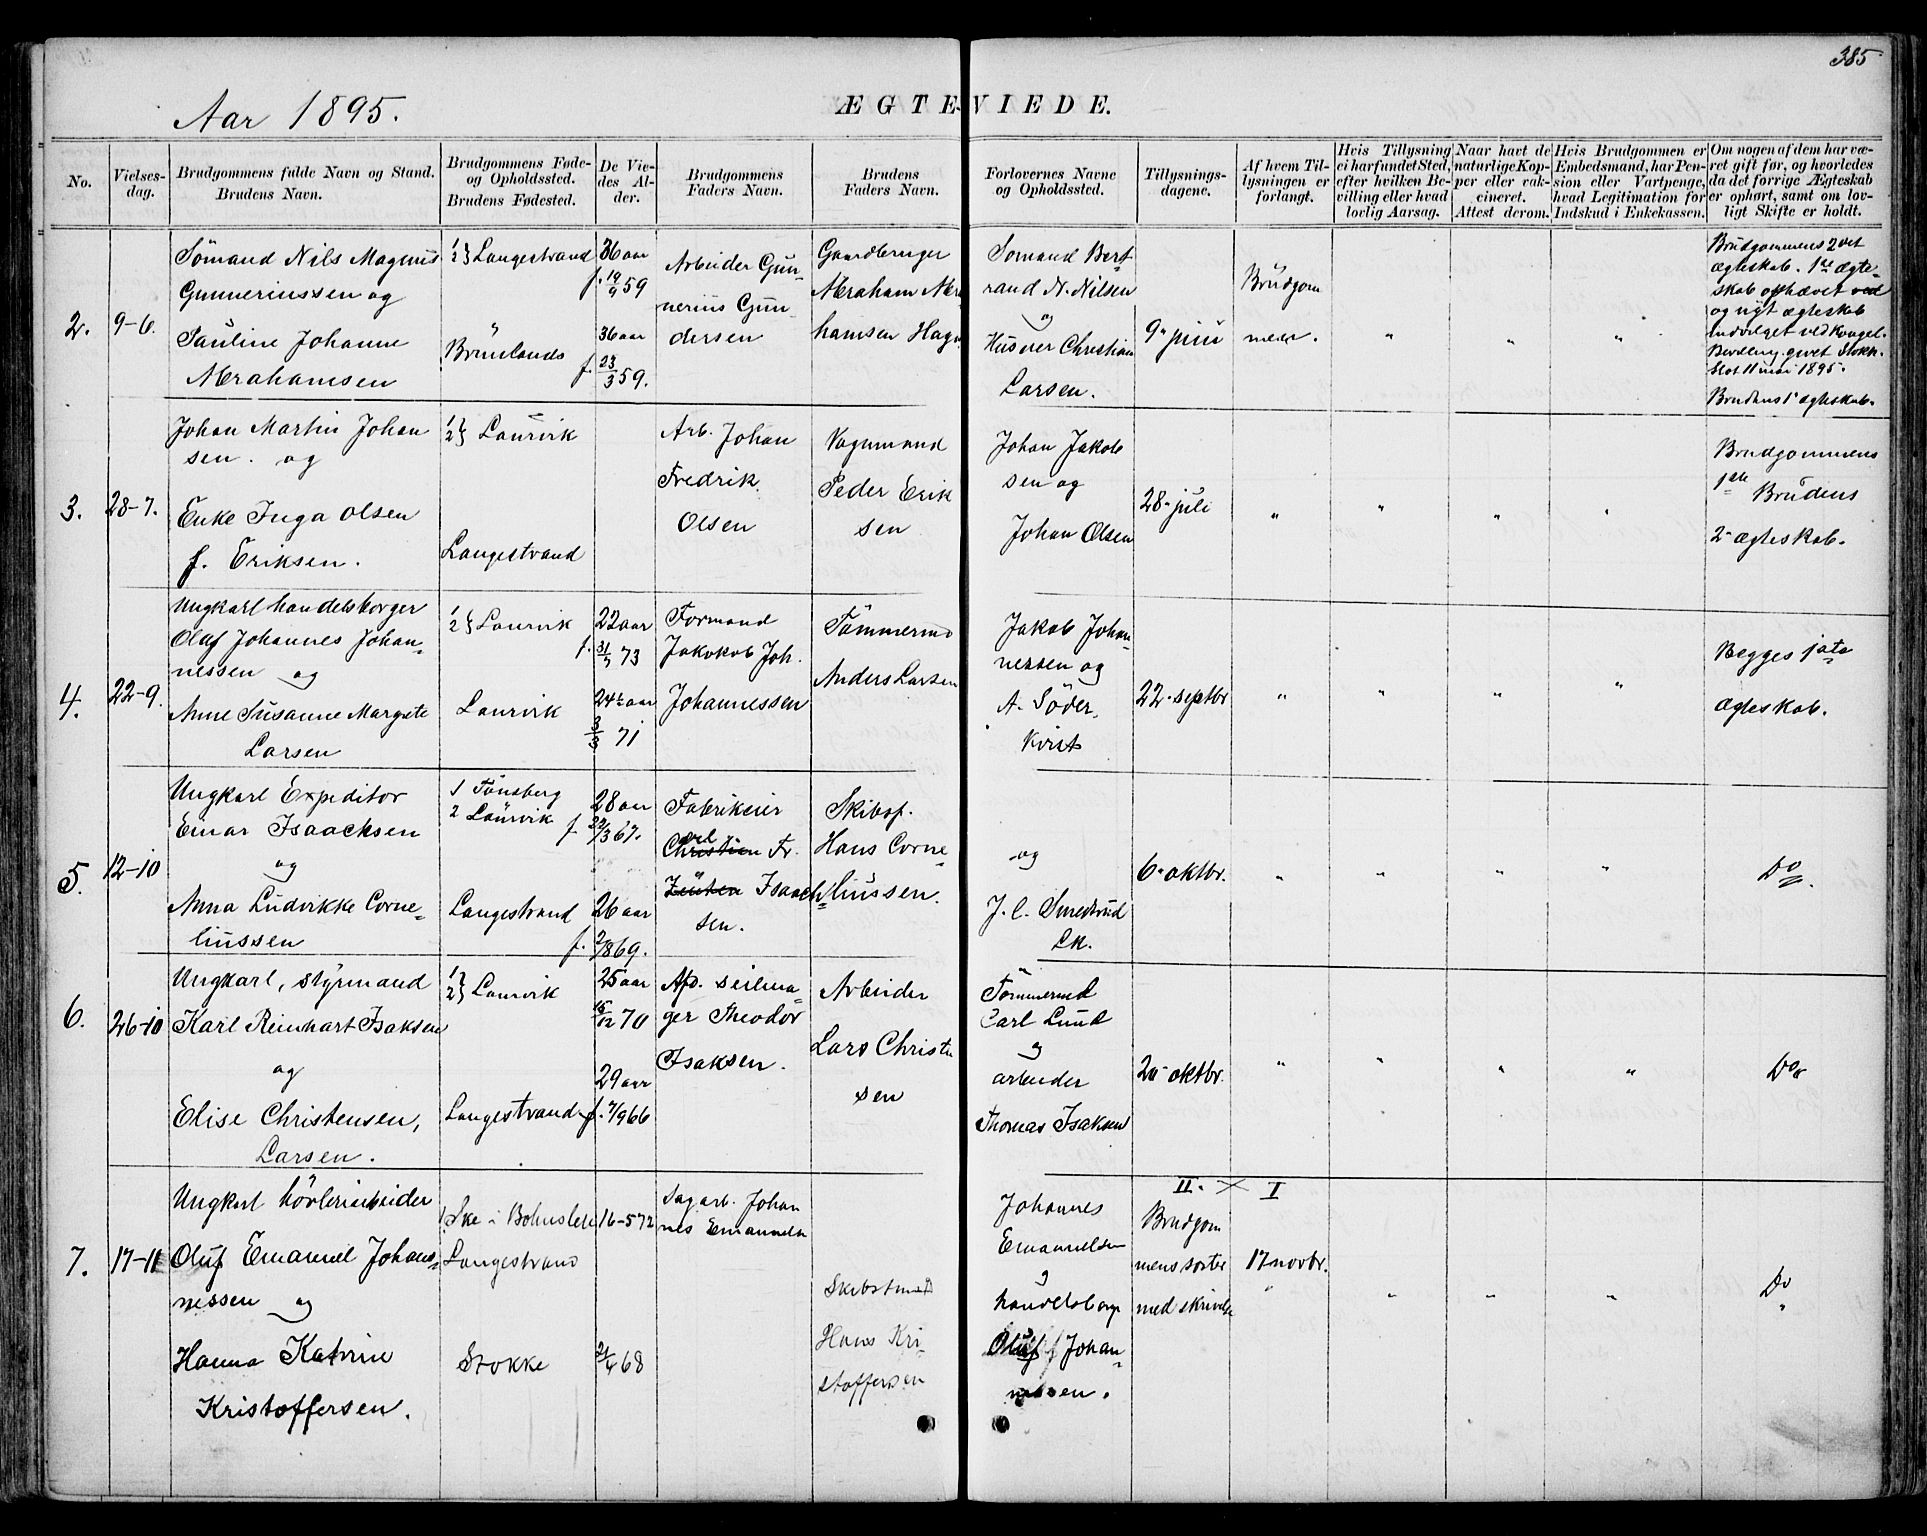 385
Aar 1895.
ÆGTEVIEDE.
No.
Vielses-
dag.
Brudgommens fulde Navn og Stand.
Brudens Navn.
Brudgommens Føde-
og Opholdssted.
Brudens Fødested.
De Vie-
des Al-
der.
Brudgommens
Faders Navn.
Brudens
Faders Navn.
Forlovernes Navne
og Opholdssted.
Tillysnings-
dagene.
Af hvem Til-
lysningen er
forlangt.
Hvis Tillysning
ei har fundet Sted,
efter hvilken Be-
villing eller hvad
lovlig Aarsag.
Naar havt de
naturlige Kop-
per eller vak-
cineret.
Attest derom.
Hvis Brudgommen er
Embedsmand, har Pen-
sion eller Vartpenge,
hvad Legitimation for
Indskud i Enkekassen.
Om nogen af dem har væ-
ret gift før, og hvorledes
da det forrige Ægteskab
er ophørt, samt om lov-
ligt Skifte er holdt.
2.
9-6.
Sömand Nils Magnus
Gunneriussen og
Pauline Johanne
Abrahamsen
1/2} Langestrand
"
Brunlands
36 aar
f. 19/9 59
36 aar
f. 23/3 59.
Arbeider Gun-
nerius Gun
dersen
Gaardbruger
Abraham Abra
hamsen Hagn
Sömand Bert
rand N. Nilsen
og
Huseier Christian
Larsen.
9" juni
Brudgom
men.
"
"
"
Brudgommens 2det
ægteskab. 1ste ægte-
skab ophævet ved
og nyt ægteskab
indvilget ved Kongel.
Bevilling givet Stokh.
Slot 11 mai 1895.
Brudens 1ste ægteskab.
3.
28-7.
Johan Martin Johan
sen. og
Enke Inga Olsen
f. Eriksen.
1/2} Laurvik
Langestrand
Arb. Johan
Fredrik
Olsen
Vognmand
Peder Erik
sen
Johan Jakob
sen og
Johan Olsen
28- juli
"
"
"
"
Brudgommens
1ste Brudens
2- ægteskab.
4.
22-9.
Ungkarl handelsborger
Olaf Johannes Johan-
nessen og
Anne Susanne Margrete
Larsen
1/2} Laurvik
Laurvik
22 aar
f. 31/7 73
24½ aar
3/3 71
Formand
Jakokob Joh.
Johannessen
Tömmermd
Anders Larsen
Jakob Johan-
nessen og
A. Söder
kvist
22- septbr
"
"
"
"
Begges 1ste
ægteskab.
5.
12-10
Ungkarl Expeditör
Einar Isaacksen
og
Anna Ludvikke Corne-
liussen
1 Tönsberg
2 Laurvik
Langestrand
28 aar
f. 22/3 67.
26 aar
f. 2/8 69.
Fabrikeier
Christian Fr.
Isaach-
sen.
Skibsf.
Hans Corne-
liussen.
og
J. C. Smedsrud
Lk.
6- oktbr.
"
"
"
"
Do
6.
26-10
Ungkarl, styrmand
Karl Reinhart Isaksen
og
Elise Christensen,
Larsen.
1/2} Laurvik
Langestrand
25 aar
15/12 70
29 aar
f. 7/9 66
Afd. seilma-
ger Theodor
Isaksen.
Arbeider
Lars Christen
sen
Tömmermd
Carl Lund
og
arbeider
Thomas Isaksen
20- oktbr.
"
"
"
"
Do
7.
17-11
Ungkarl hövleriarbeider
Oluf Emanuel Johan-
nessen og
Hanna Katrine
Kristoffersen.
1 Ske i Bohuslen
Langestrand
Stokke
16-5 72
21/4 68
Sagarb. Johan
nes Emanuels
Skibstmd
Hans Kri-
stoffersen
Johannes
Emanuelsen
og
handelsborger
Oluf Johan-
nessen.
II. × I
Brudgom
mens
med skrivelse
17 novbr.
"
"
"
"
Do
"